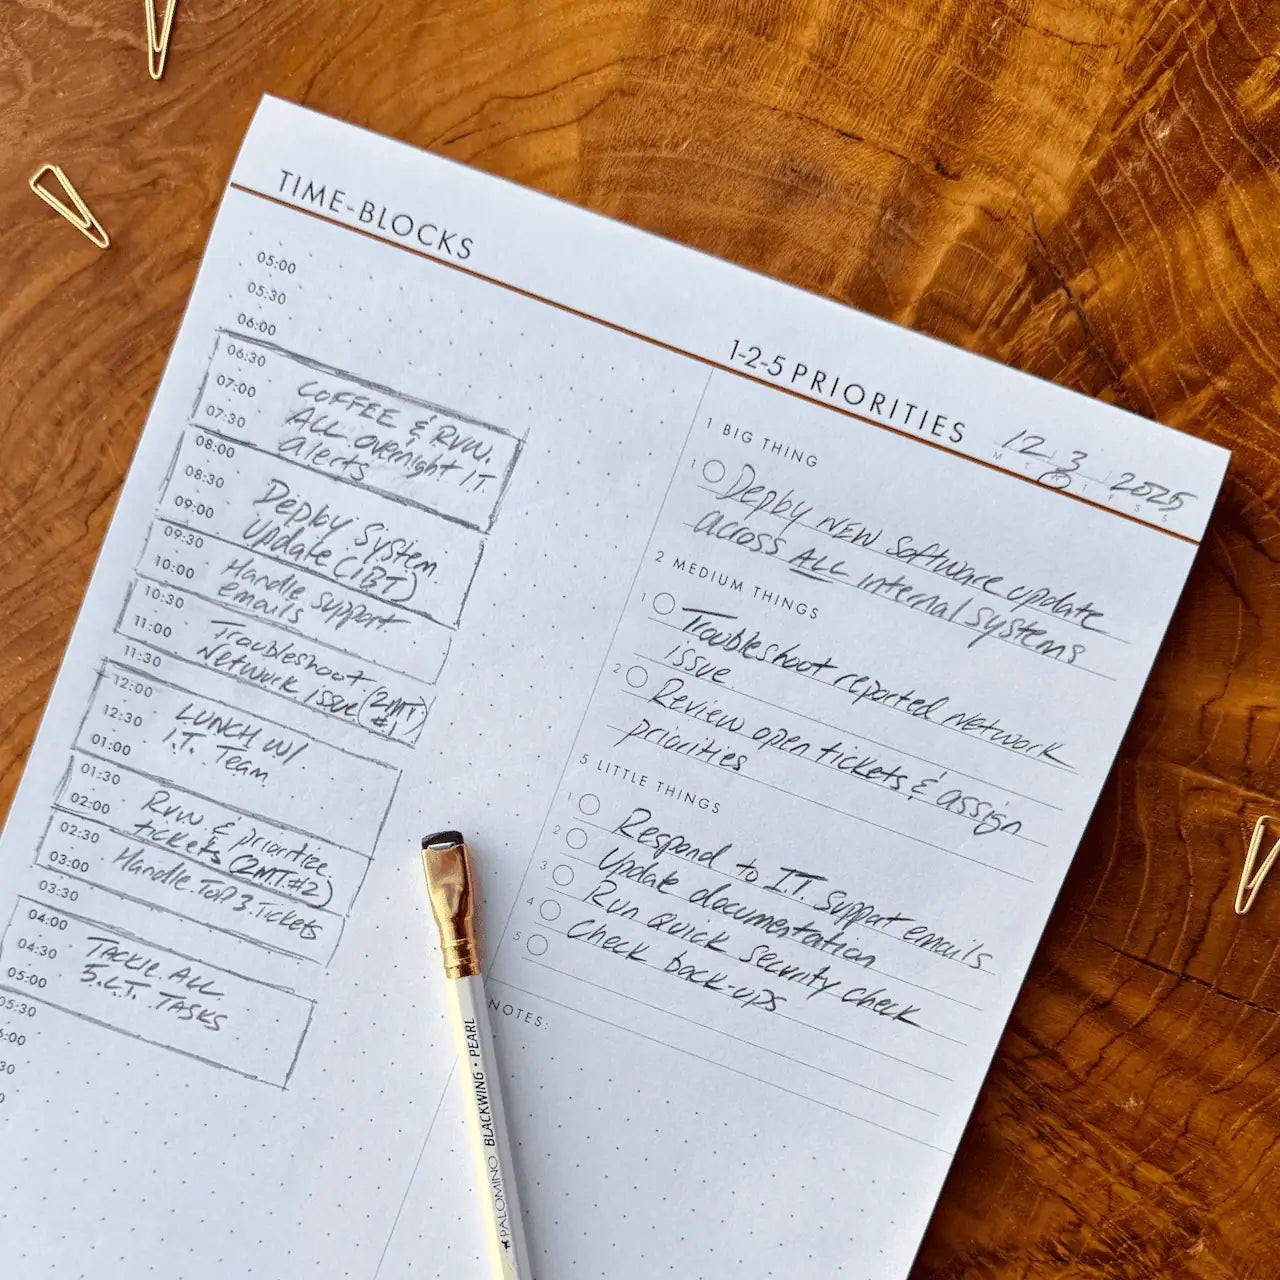 TIME-BLOCKS
05:00
05:30
06:00
06:30
07:00
07:30
COFFEE & RVW.
ALL overnight I.T.
alerts
08:00
08:30
09:00
Deploy System
update (1BT)
09:30
10:00
Handle support
emails
10:30
11:00
11:30
Troubleshoot
Network issue (2MT
#1)
12:00
12:30
01:00
LUNCH W/
I.T. Team
01:30
02:00
RVW. & prioritize
tickets (2M.T.#2)
02:30
03:00
Handle TOP 3 Tickets
03:30
04:00
04:30
05:00
TACKLE ALL
5.L.T. TASKS
05:30
6:00
30
1-2-5 PRIORITIES
12 3 2025
M T W T F S S
1 BIG THING
1 Deploy NEW Software update
across ALL internal systems
2 MEDIUM THINGS
1 Troubleshoot reported network
issue.
2 Review open tickets & assign
priorities
5 LITTLE THINGS
1 Respond to I.T. support emails
2 Update documentation
3 Run quick security check
4 Check back-ups
5
NOTES:
PALOMINO BLACKWING • PEARL